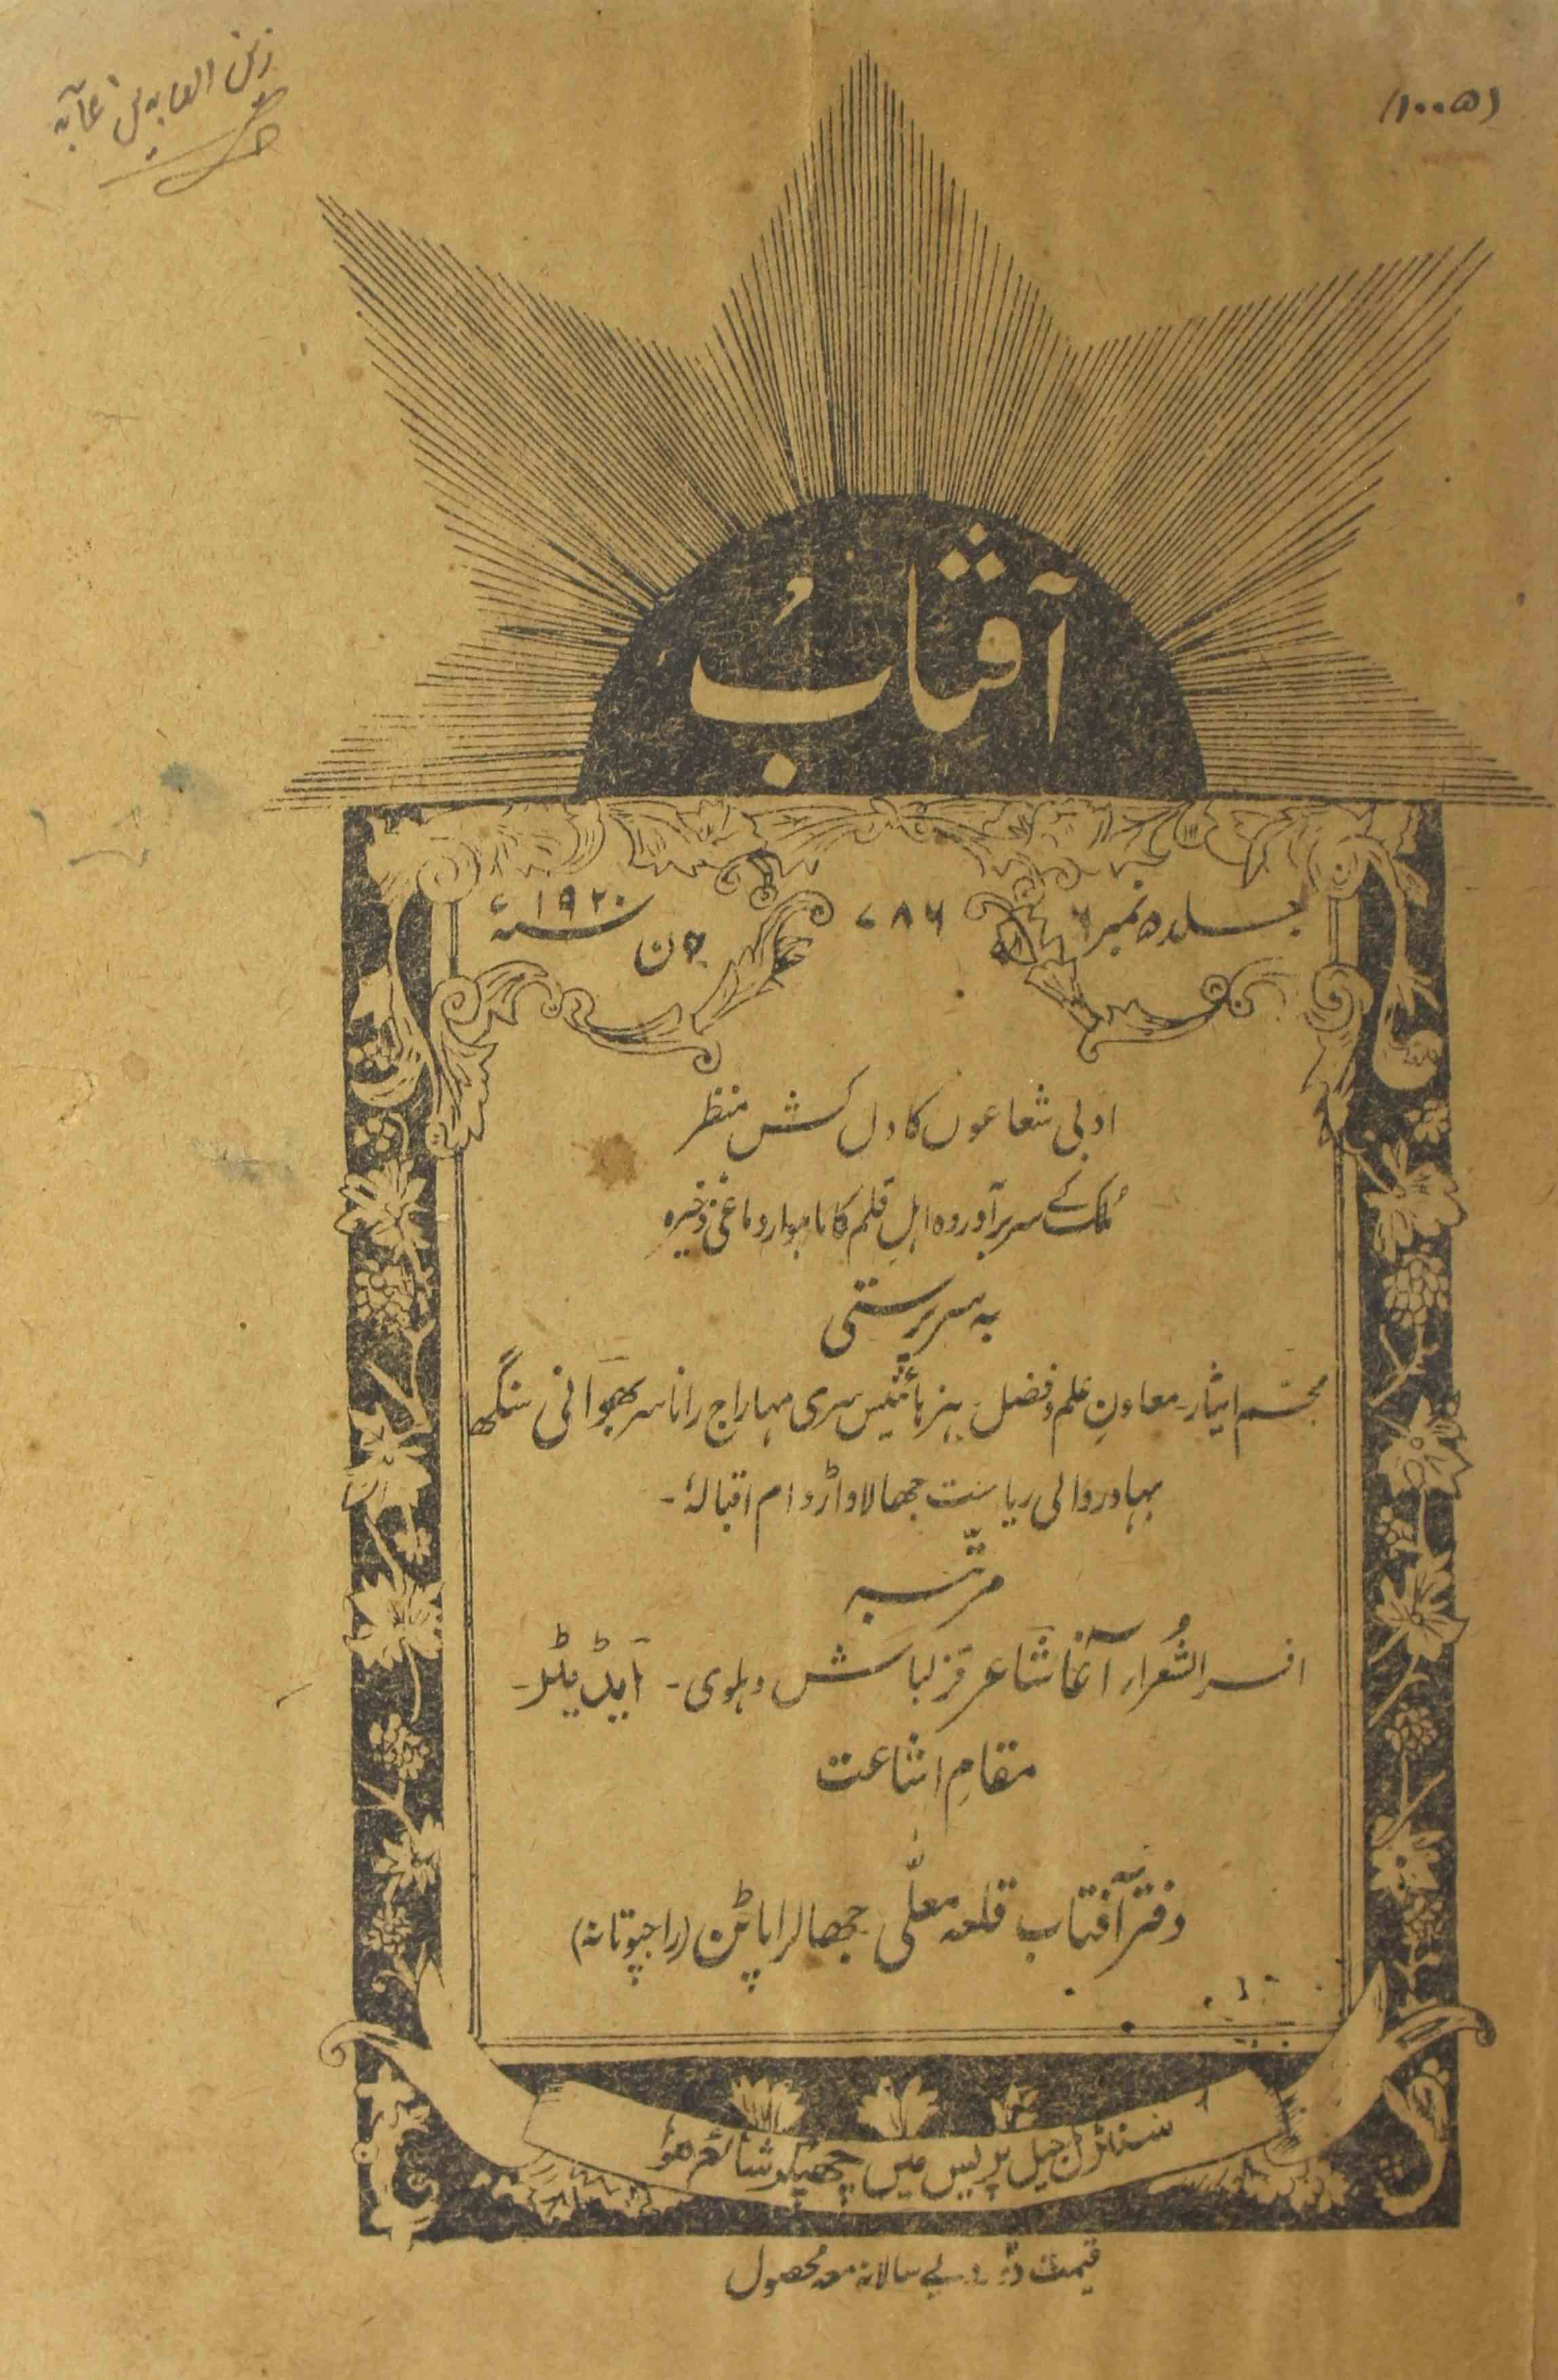 زین العابدین
(۱۰۰۵)
آفتاب
جلد ۵ نمبر ۶
۷۸۶
جون سنہ ۱۹۲۰ء
ادبی شعاعوں کا دل کش منظر
مُلک کے سربرآوردہ اہلِ قلم کا ماہوار دماغی ذخیرہ
بہ سرپرستی
مجسّم ایثار۔ معاونِ علم و فضل۔ ہزہائنیس سری مہاراج رانا سر بھوانی سنگھ
بہادر والی ریاست جھالاواڑ دام اقبالہٗ۔
مرتّبہ
افسر الشُعراء آغا شاعر قزلباش دہلوی۔ ایڈیٹر۔
مقامِ اشاعت
دفتر آفتاب قلعہ معلّٰی جھالراپاٹن (راجپوتانہ)
سنٹرل جیل پریس میں چھپکر شائع ہؤا
قیمت دو روپے سالانہ معہ محصول